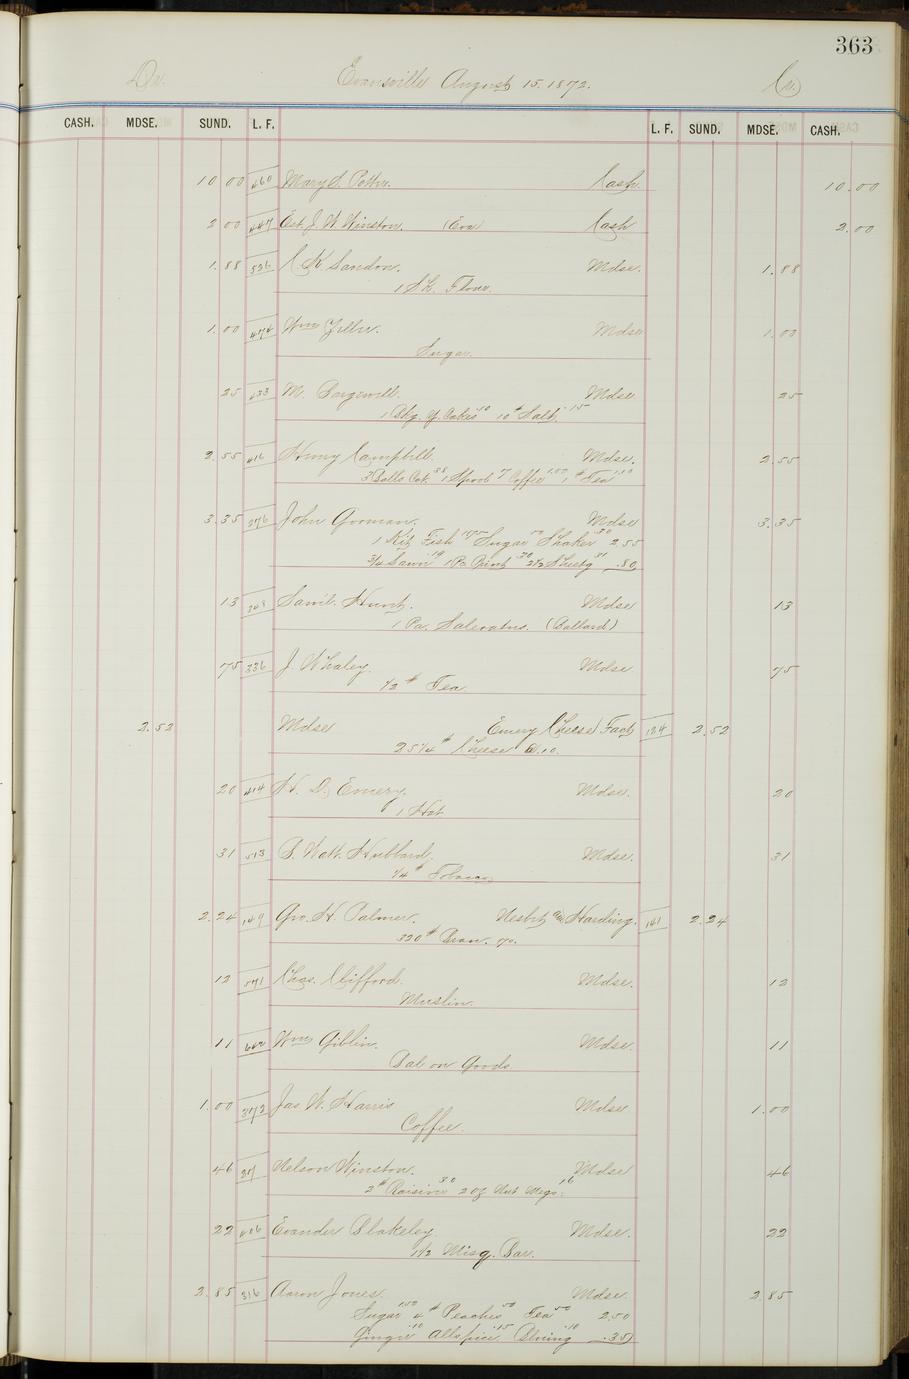 363
Dr. Evansville August 15. 1872. Cr.
CASH. MDSE. SUND. L. F. L. F. SUND. MDSE. CASH.
10 00 460 Mary S. Potter. Cash 10.00
2 00 447 Est. J. W. Winston. (Eva) Cash 2.00
1.88 526 Mdse. 1.88
1 Sk. Flour.
1.00 474 Wm Mdse 1.00
Sugar.
25 M. Mdse 25
1 Pkg. Y. Cakes 10 10# Salt 15
2.55 416 Henry Campbell. Mdse. 2.55
1 Spool 7 Coffee 1.00 1# Tea 1.10
3.35 276 John Gorman. Mdse 3.35
1 Kit Fish 1.75 Sugar 50 Shaker 30 2.55
3/4 Lawn 19 1 Pa. Print 30 3 1/2 Sheetg 31 .80
13 248 Saml. Hunt. Mdse 13
1 Pa. Saleratus. (Ballard)
75 336 J. Whaley. Mdse 75
1/2# Tea
2.52 Mdse Emery Cheese Fact 124 2.52
25 1/4# Cheese @.10.
20 414 H. D. Emery. Mdse. 20
1 Hat
31 513 Hubbard. Mdse. 31
1/4# Tobacco
2.24 149 Geo. H. Palmer. Nesbit & Harding. 141 2.24
320# Bran. 70.
12 571 Chas. Clifford. Mdse. 12
Muslin.
11 642 Wm Giblin. Mdse. 11
Bal on Goods
1.00 372 Jas W. Harris Mdse 1.00
Coffee.
46 251 Nelson Winston. Mdse 46
2# Raisins 30 2 oz Nut Megs. 16
22 406 Evander Blakeley. Mdse. 22
1 1/2 Misq. Bar.
2.85 316 Aaron Jones. Mdse. 2.85
Sugar 1.50 4# Peaches 50 Tea 50 2.50
Ginger 10 Allspice 15 Bluing 10 .35